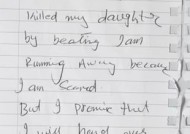 Killed my daughter
by beating I am
Running Away because
I am Scared
But I Promise that
I will hand over